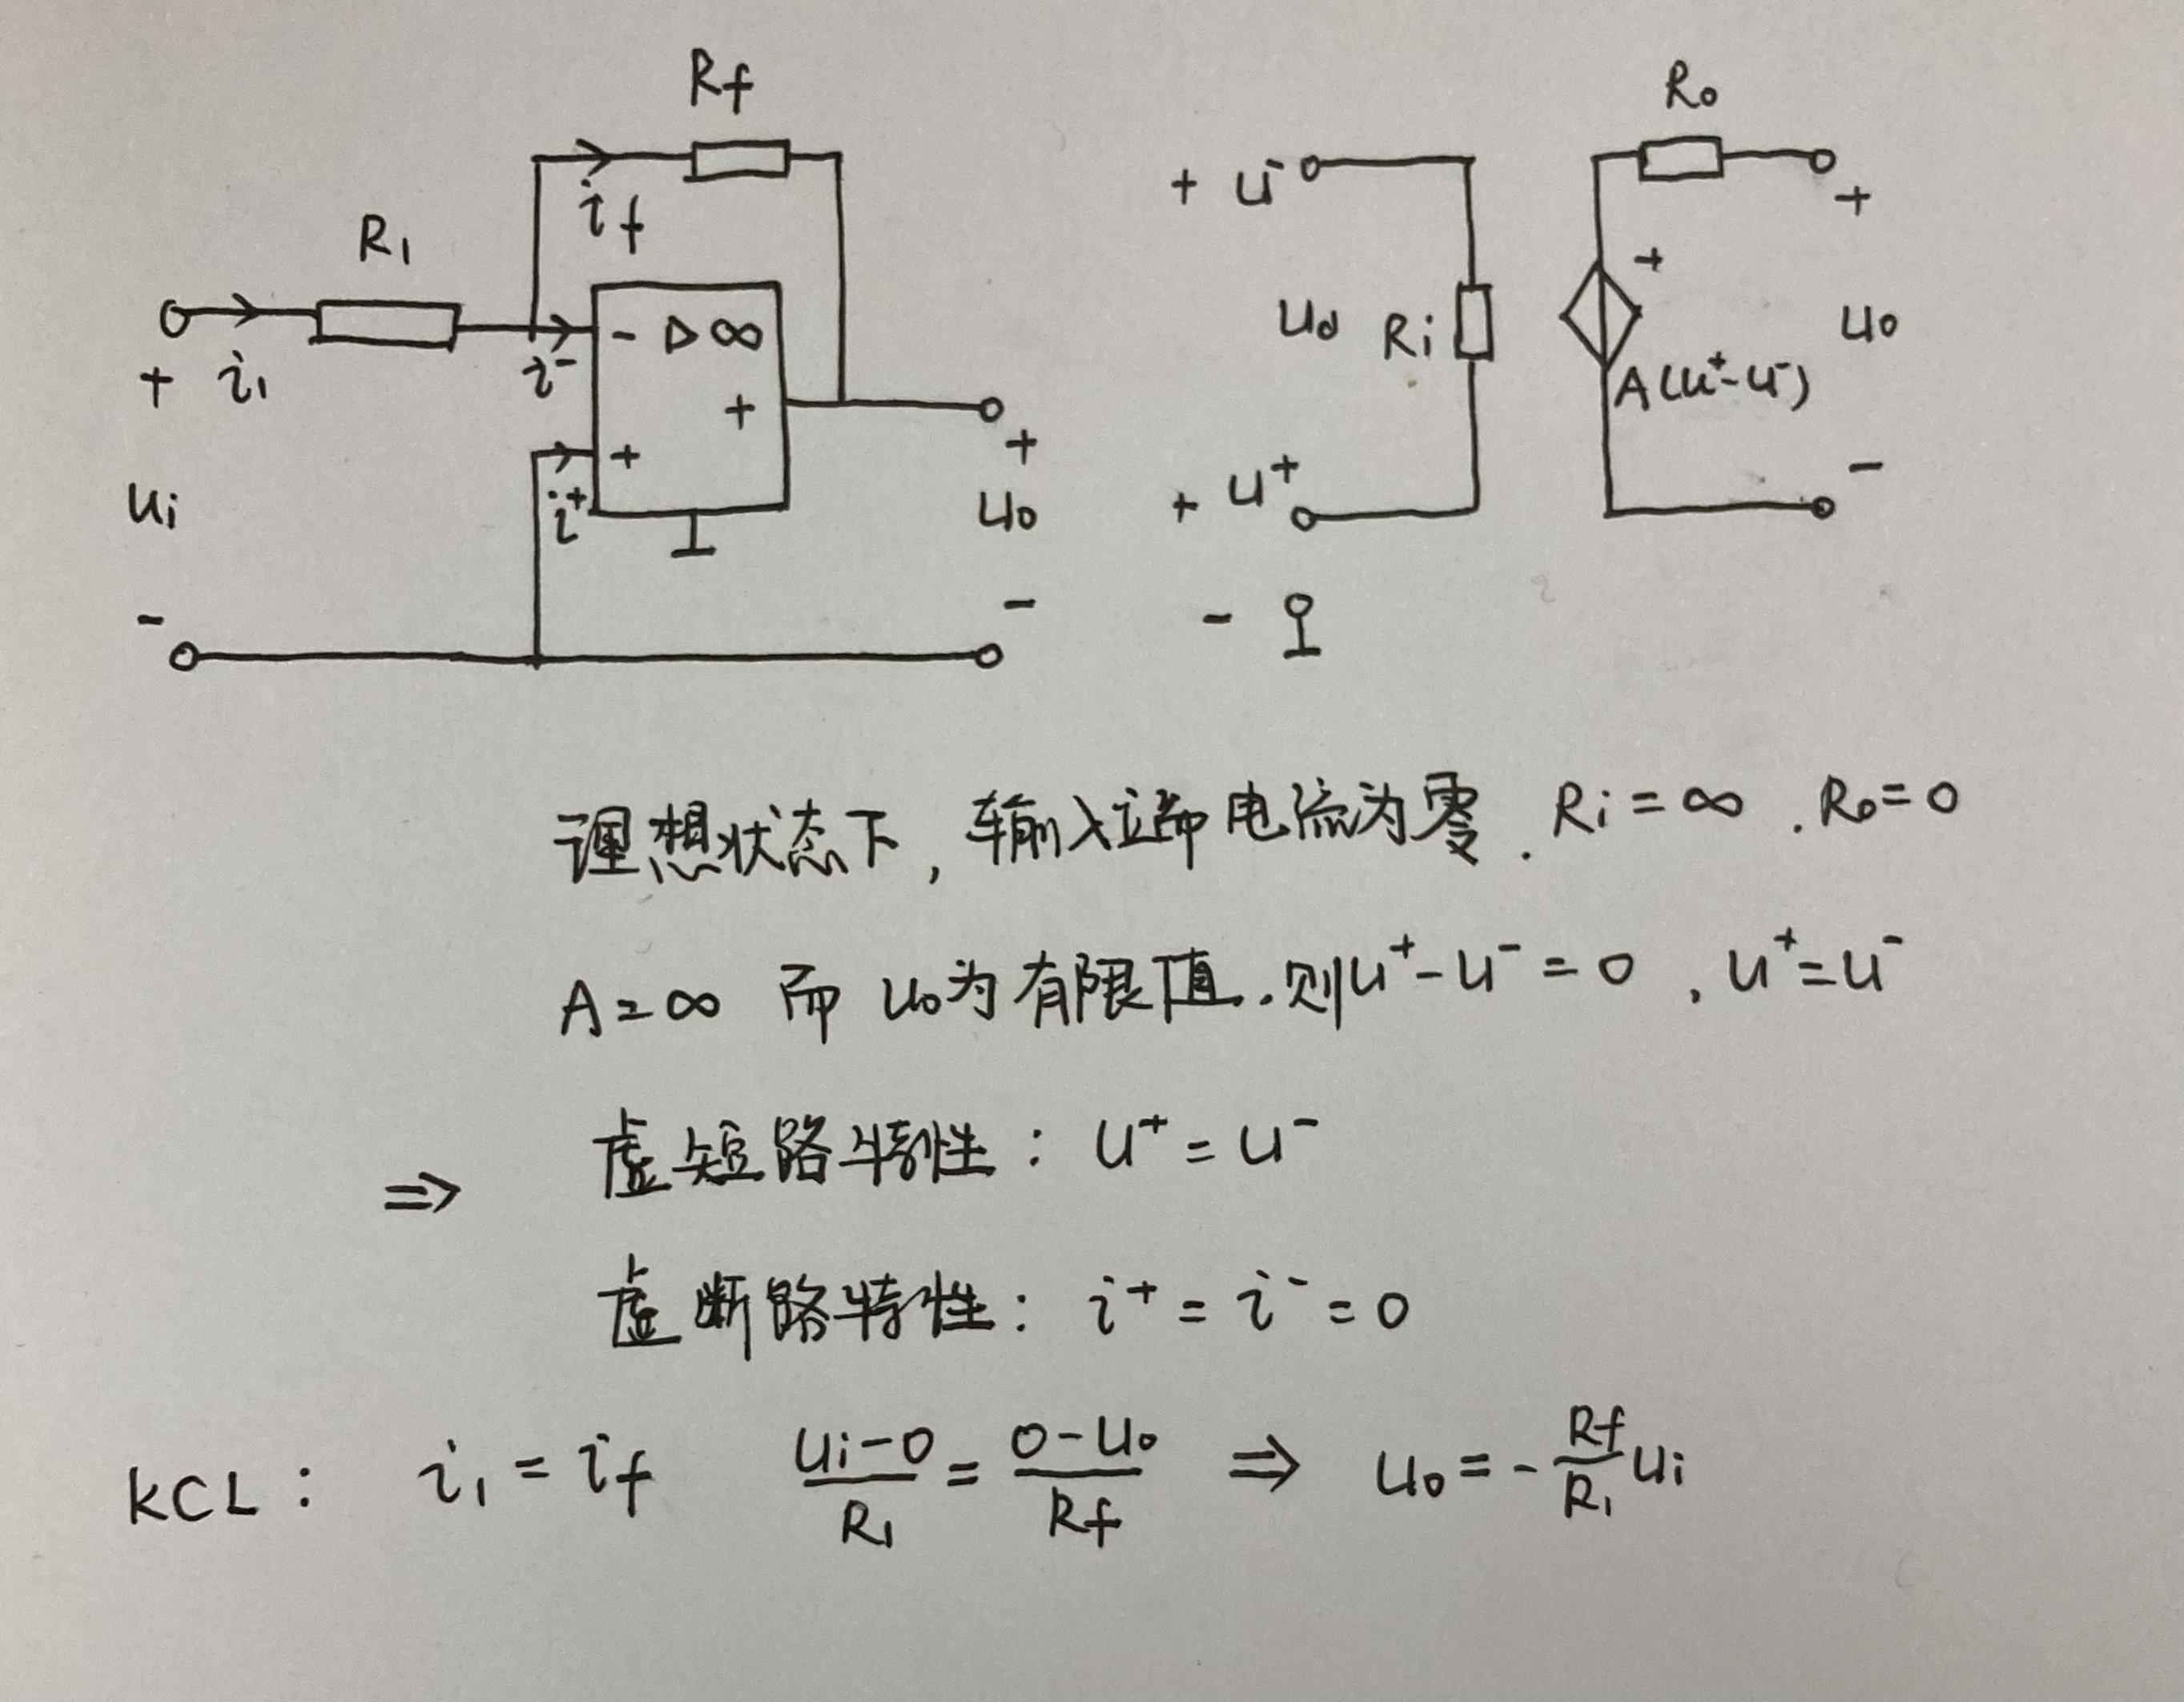 Rf
R₁
i f
+ i₁
i⁻
- ▷ ∞
+
+
i⁺
ui
-
+
uo
-
Ro
+ u⁻
+
ud Ri
+
A(u⁺-u⁻)
uo
+ u⁺
-
-
理想状态下,输入端电流为零. Ri=∞ .Ro=0
A=∞ 而 uo为有限值.则u⁺-u⁻=0 , u⁺=u⁻
⇒ 虚短路特性: u⁺=u⁻
虚断路特性: i⁺=i⁻=0
KCL: i₁=if (ui-0)/R₁=(0-uo)/Rf ⇒ uo=-Rf/R₁ui